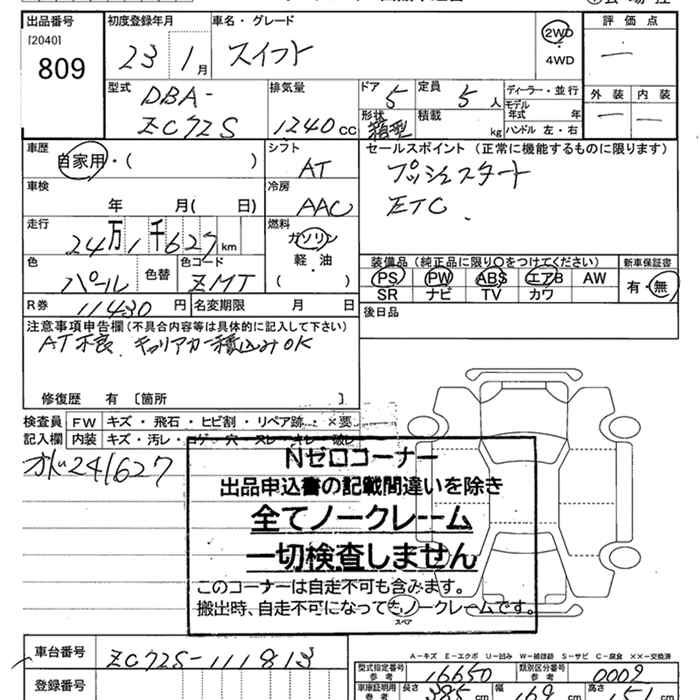 出品番号 初度登録年月 車名・グレード 評価点
[2040] 809 23 1月 スイフト 2WD ・ 4WD 一
型式 DBA-ZC72S 排気量 1240cc ドア 5 定員 5人 ディーラー・並行 外装 内装
形状 箱型 積載 kg モデル年式 年 ハンドル 左・右 一 一
車歴 自家用・( ) シフト AT セールスポイント (正常に機能するものに限ります)
プッシュスタート
車検 年 月( 日) 冷房 AAC ETC.
走行 24万1千627km 燃料 ガソリン
軽・油
( )
色 パール 色替 色コード ZMT 装備品(純正品に限り○をつけてください) 新車保証書
PS PW ABS エアB AW 有・無
SR ナビ TV カワ
R券 11430円 名変期限 月 日 後日品
注意事項申告欄(不具合内容等は具体的に記入して下さい)
AT不良 キャリアカー積込みOK
修復歴 有 〔箇所 〕
検査員 FW キズ・飛石・ヒビ割・リペア跡・×要
記入欄 内装 キズ・汚レ・コゲ・穴・スレ・
241627
Nゼロコーナー
出品申込書の記載間違いを除き
全てノークレーム
一切検査しません
このコーナーは自走不可も含みます。
搬出時、自走不可になってもノークレームです。
スペア
A-キズ E-エクボ U-凹み W-補修跡 S-サビ C-腐食 ××-交換済
車台番号 ZC72S-111813 型式指定番号 参考 16650 類別区分番号 参考 0009
登録番号 車庫証明用 参考 長さ 385cm 幅 169cm 高さ 151cm